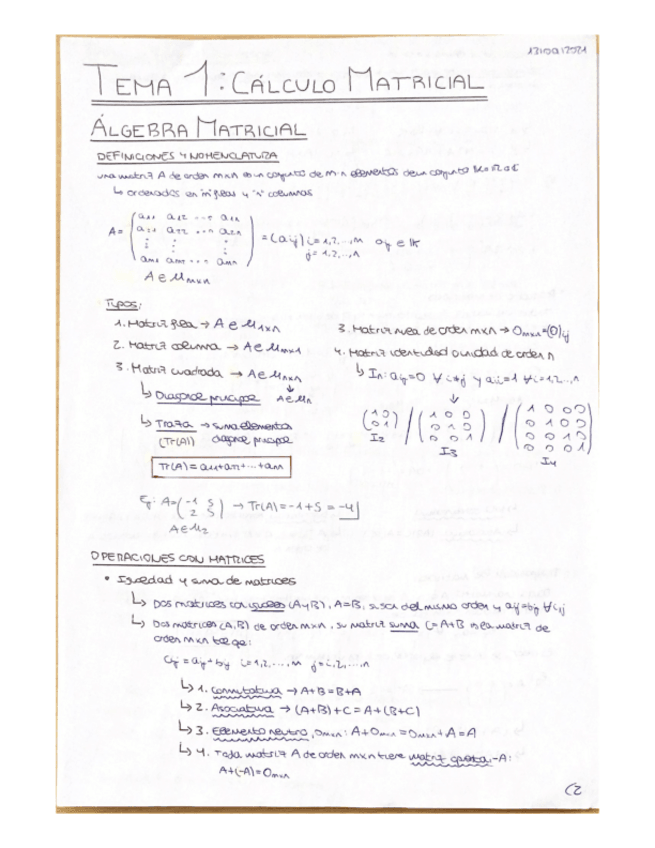 13/09/2021
TEMA 1: CÁLCULO MATRICIAL
ÁLGEBRA MATRICIAL
DEFINICIONES Y NOMENCLATURA
una matriz A de orden mxn es un conjunto de m·n elementos de un conjunto K=R o C
↳ ordenados en m filas y "n" columnas
A = ( a11 a12 ... a1n
a21 a22 ... a2n
⋮ ⋮ ⋮
am1 am2 ... amn ) = (aij) i=1,2,...,m aij ∈ K
j=1,2,...,n
A ∈ Mmxn
TIPOS:
1. Matriz fila → A ∈ M1xn
2. Matriz columna → A ∈ Mmx1
3. Matriz cuadrada → A ∈ Mnxn
↳ Diagonal principal A ∈ Mn
↳ Traza → suma elementos
(Tr(A)) diagonal principal
Tr(A) = a11+a22+...+ann
3. Matriz nula de orden mxn → Omxn=(0)ij
4. Matriz identidad o unidad de orden n
↳ In: aij=0 ∀ i≠j y aii=1 ∀i=1,2,..,n
↓
(1 0
0 1) / (1 0 0
0 1 0
0 0 1) / (1 0 0 0
0 1 0 0
0 0 1 0
0 0 0 1)
I2 I3 I4
Ej: A=(-1 5
2 5) → Tr(A)=-1+5 = -4
A∈M2
OPERACIONES CON MATRICES
• Igualdad y suma de matrices
↳ Dos matrices son iguales (A y B), A=B, si son del mismo orden y aij=bij ∀i,j
↳ Dos matrices (A,B) de orden mxn, su matriz suma C=A+B es la matriz de
orden mxn tal que:
cij = aij + bij i=1,2,...,m j=1,2,...,n
↳ 1. Conmutativa → A+B=B+A
↳ 2. Asociativa → (A+B)+C=A+(B+C)
↳ 3. Elemento neutro, Omxn: A+Omxn=Omxn+A=A
↳ 4. Toda matriz A de orden mxn tiene matriz opuesta, -A:
A+(-A)=Omxn